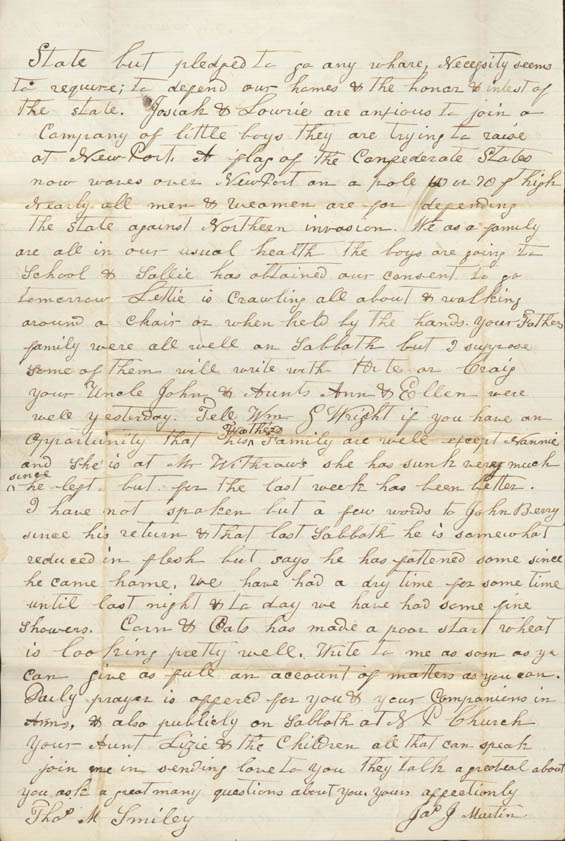 State but pledged to go any whare, Necessity seems
to require; to defend our homes & the honor & intest of
the state. Josiah & Lowrie are anxious to join a
Company of little boys they are trying to raise
at NewPort. A flag of the Confederate States
now waves over NewPort on a pole or 70 f high
Nearly all men & weamen are for defending
the State against Northern invasion. We as a family
are all in our usual health the boys are going to
School & Sallie has obtained our consent to go
tomorrow Lettie is Crawling all about & walking
around a chair or when held by the hands. your Fathers
family were all well on Sabbath but I suppose
some of them will write with or Craig
your Uncle John & Aunts Ann & Ellen were
well yesterday. Tell Wm S Wright if you have an
Opportunity that his Fathers Family are well except Nannie
and She is at Mr Withraws she has sunk very much
since he left but for the last week has been better.
I have not spoken but a few words to John Berry
since his return & that last Sabbath he is somewhat
reduced in flesh but says he has fattened some since
he came home. We have had a dry time for some time
until last night & to day we have had some fine
Showers. Corn & Oats has made a poor start wheat
is looking pretty well. Write to me as soon as yu
can give as full an account of matters as you can.
Daily prayer is offered for you & your Companions in
Arms, & also publicly on Sabbath at N P Church
Your Aunt Lizie & the Children all that can speak
join me in sending love to you they talk a greateal about
you ask a great many questions about you. yours affectionly
Thos M Smiley Jas J Martin